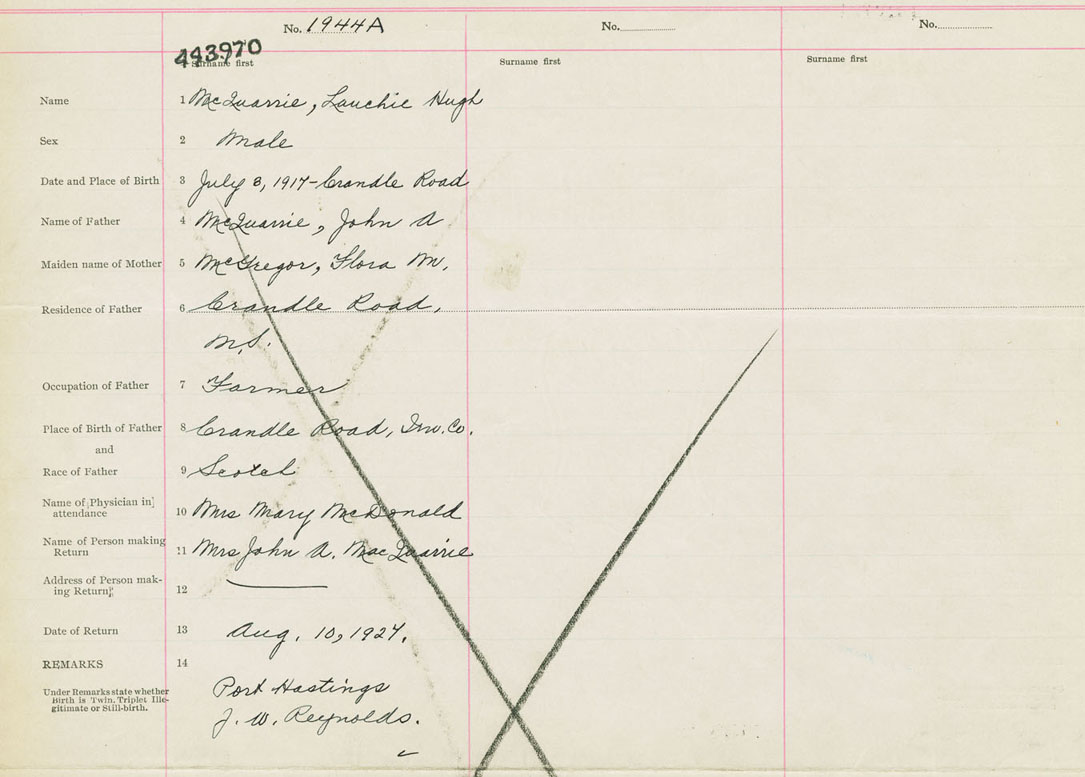 No. 1944A No. No.
443970
Surname first Surname first Surname first
Name 1 McQuarrie, Lauchie Hugh
Sex 2 Male
Date and Place of Birth 3 July 3, 1917 - Crandle Road
Name of Father 4 McQuarrie, John A
Maiden name of Mother 5 McGregor, Flora M.
Residence of Father 6 Crandle Road,
N.S.
Occupation of Father 7 Farmer
Place of Birth of Father 8 Crandle Road, Inv. Co.
and
Race of Father 9 Scotch
Name of Physician in
attendance 10 Mrs Mary McDonald
Name of Person making
Return 11 Mrs John A. MacQuarrie
Address of Person mak-
ing Return 12
Date of Return 13 Aug. 10, 1927.
REMARKS 14
Under Remarks state whether
Birth is Twin, Triplet Ille-
gitimate or Still-birth.
Port Hastings
J. W. Reynolds.